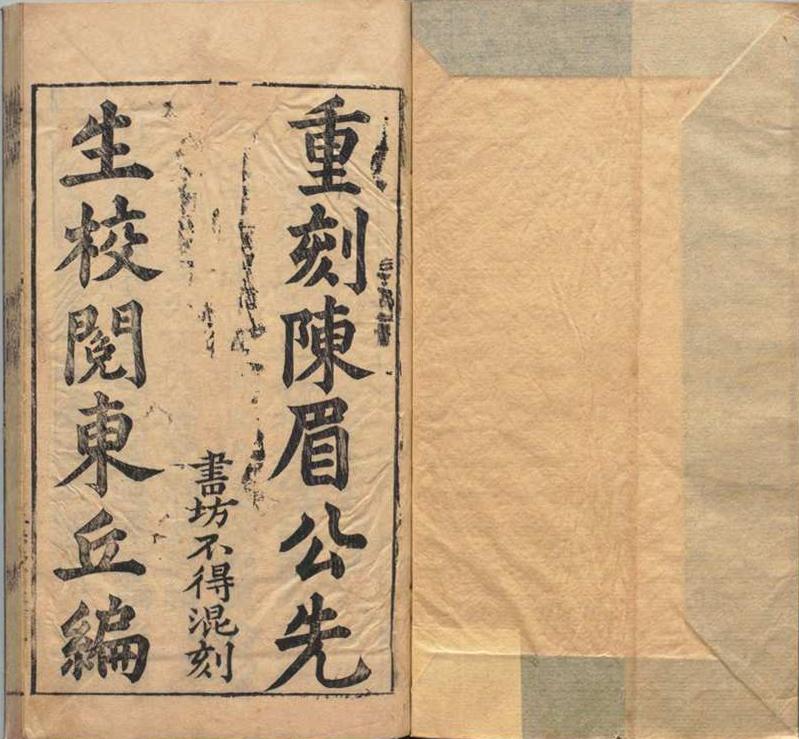 重刻陳眉公先
書坊不得混刻
生校閱東丘編